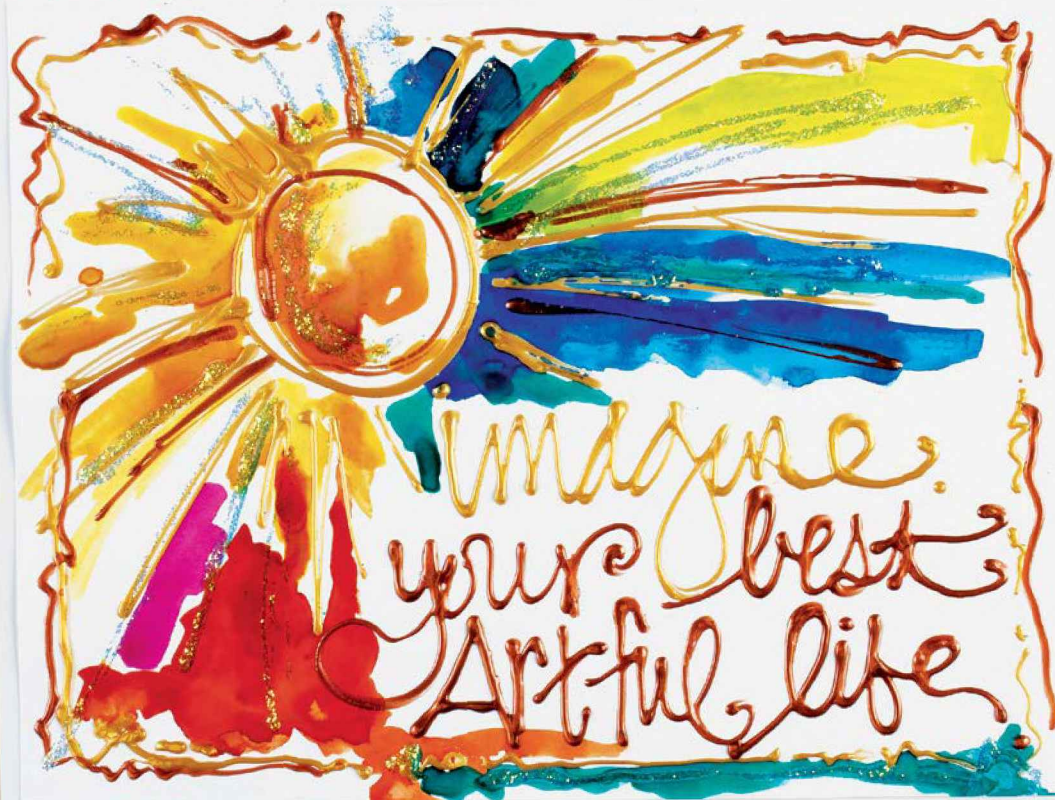 imagine.
your best
Artful life